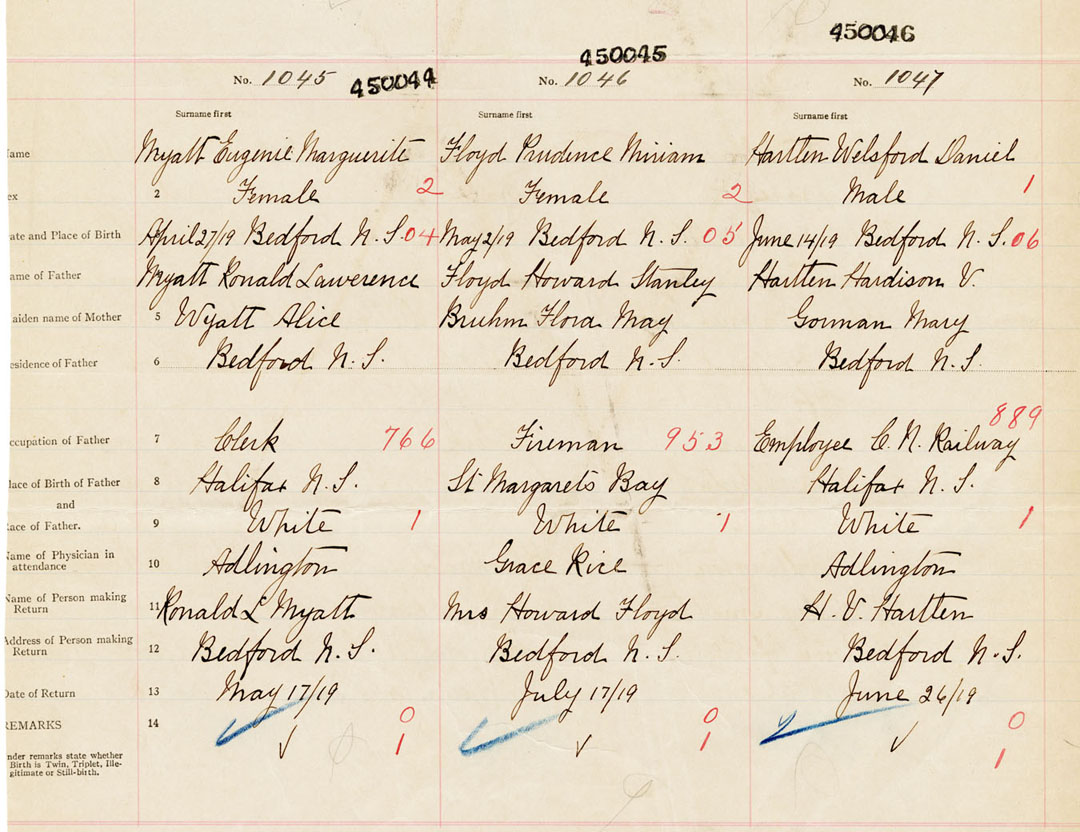 450044 450045 450046
No. 1045 No. 1046 No. 1047
Surname first Surname first Surname first
ame Myatt Eugenie Marguerite Floyd Prudence Miriam Hartten Welsford Daniel
ex 2 Female 2 Female 2 Male 1
ate and Place of Birth April 27/19 Bedford N.S. 04 May 2/19 Bedford N.S. 05 June 14/19 Bedford N.S. 06
ame of Father Myatt Ronald Lawerence Floyd Howard Stanley Hartten Hardison V.
aiden name of Mother 5 Wyatt Alice Bruhm Flora May Gorman Mary
esidence of Father 6 Bedford N.S. Bedford N.S. Bedford N.S.
ccupation of Father 7 Clerk 766 Fireman 953 Employee C.N. Railway 889
lace of Birth of Father 8 Halifax N.S. St Margarets Bay Halifax N.S.
and
ace of Father. 9 White 1 White 1 White 1
Name of Physician in
attendance 10 Adlington Grace Rice Adlington
Name of Person making
Return 11 Ronald L Myatt Mrs Howard Floyd H.V. Hartten
Address of Person making
Return 12 Bedford N.S. Bedford N.S. Bedford N.S.
Date of Return 13 May 17/19 July 17/19 June 26/19
REMARKS 14 0 0 0
1 1 1
nder remarks state whether
Birth is Twin, Triplet, Ille-
gitimate or Still-birth.